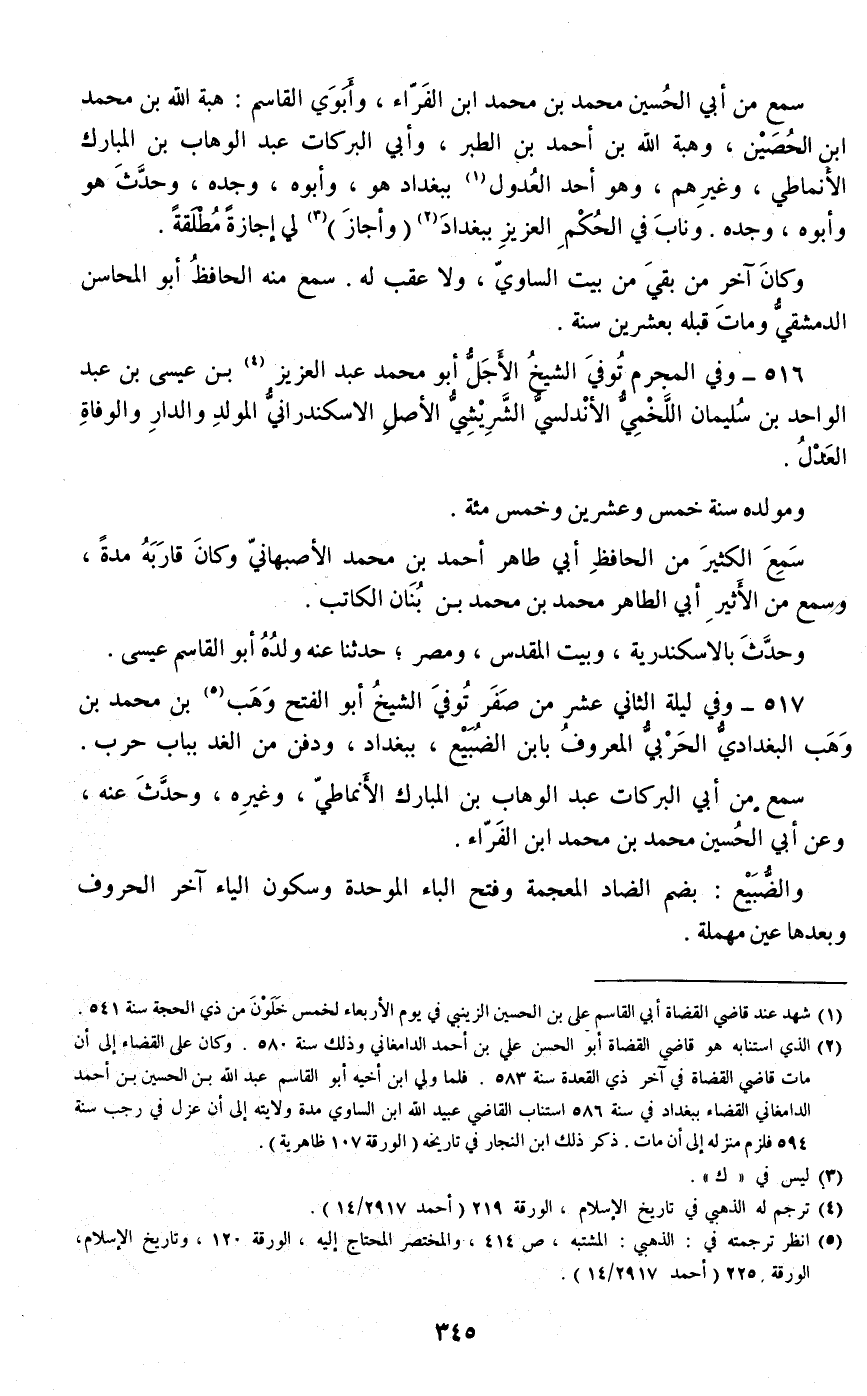 سمع من أبي الحُسين محمد بن محمد ابن الفَرّاء ، وأَبَوَي القاسم : هبة الله بن محمد
ابن الحُصَيْن ، وهبة الله بن أحمد بن الطبر ، وأبي البركات عبد الوهاب بن المبارك
الأنماطي ، وغيرهم ، وهو أحد العُدول(١) ببغداد هو ، وأبوه ، وجده ، وحدَّثَ هو
وأبوه ، وجده . ونابَ في الحُكْمِ العزيزِ ببغدادَ(٢) ( وأجازَ )(٣) لي إجازةً مُطْلَقةً .
وكانَ آخر من بقيَ من بيت الساويّ ، ولا عقب له . سمع منه الحافظُ أبو المحاسن
الدمشقيُّ وماتَ قبله بعشرين سنة .
٥١٦ ـ وفي المحرم تُوفيَ الشيخُ الأَجَلُّ أبو محمد عبد العزيز (٤) بـن عيسى بن عبد
الواحد بن سُليمان اللَّخْمِيُّ الأنْدلسيُّ الشَّرِيْشِيُّ الأصلِ الاسكندرانيُّ المولدِ والدارِ والوفاةِ
العَدْلُ .
ومولده سنة خمس وعشرين وخمس مئة .
سَمِعَ الكثيرَ من الحافظِ أبي طاهر أحمد بن محمد الأصبهانيّ وكانَ قارَبَهُ مدةً ،
وسمع من الأَثيرِ أبي الطاهر محمد بن محمد بـن بُنَان الكاتب .
وحدَّثَ بالاسكندرية ، وبيت المقدس ، ومصر ؛ حدثنا عنه ولدُهُ أبو القاسم عيسى .
٥١٧ ـ وفي ليلة الثاني عشر من صَفَر تُوفيَ الشيخُ أبو الفتح وَهَب(٥) بن محمد بن
وَهَب البغداديُّ الحَرْبيُّ المعروفُ بابن الضُبَيْع ، ببغداد ، ودفن من الغد بباب حرب .
سمع من أبي البركات عبد الوهاب بن المبارك الأنماطيّ ، وغيرِه ، وحدَّثَ عنه ،
وعن أبي الحُسين محمد بن محمد ابن الفَرّاء .
والضُّبَيْع : بضم الضاد المعجمة وفتح الباء الموحدة وسكون الياء آخر الحروف
وبعدها عين مهملة .
(١) شهد عند قاضي القضاة أبي القاسم علي بن الحسين الزينبي في يوم الأربعاء لخمس خَلَوْنَ من ذي الحجة سنة ٥٤١ .
(٢) الذي استنابه هو قاضي القضاة أبو الحسن علي بن أحمد الدامغاني وذلك سنة ٥٨٠ . وكان على القضاء إلى أن
مات قاضي القضاة في آخر ذي القعدة سنة ٥٨٣ . فلما ولي ابن أخيه أبو القاسم عبد الله بـن الحسين بـن أحمد
الدامغاني القضاء ببغداد في سنة ٥٨٦ استناب القاضي عبيد الله ابن الساوي مدة ولايته إلى أن عزل في رجب سنة
٥٩٤ فلزم منزله إلى أن مات . ذكر ذلك ابن النجار في تاريخه ( الورقة ١٠٧ ظاهرية ) .
(٣) ليس في « ك » .
(٤) ترجم له الذهبي في تاريخ الإسلام ، الورقة ٢١٩ ( أحمد ١٤/٢٩١٧ ) .
(٥) انظر ترجمته في : الذهبي : المشتبه ، ص ٤١٤ ، والمختصر المحتاج إليه ، الورقة ١٢٠ ، وتاريخ الإسلام،
الورقة ٢٢٥ ( أحمد ١٤/٢٩١٧ ) .
٣٤٥